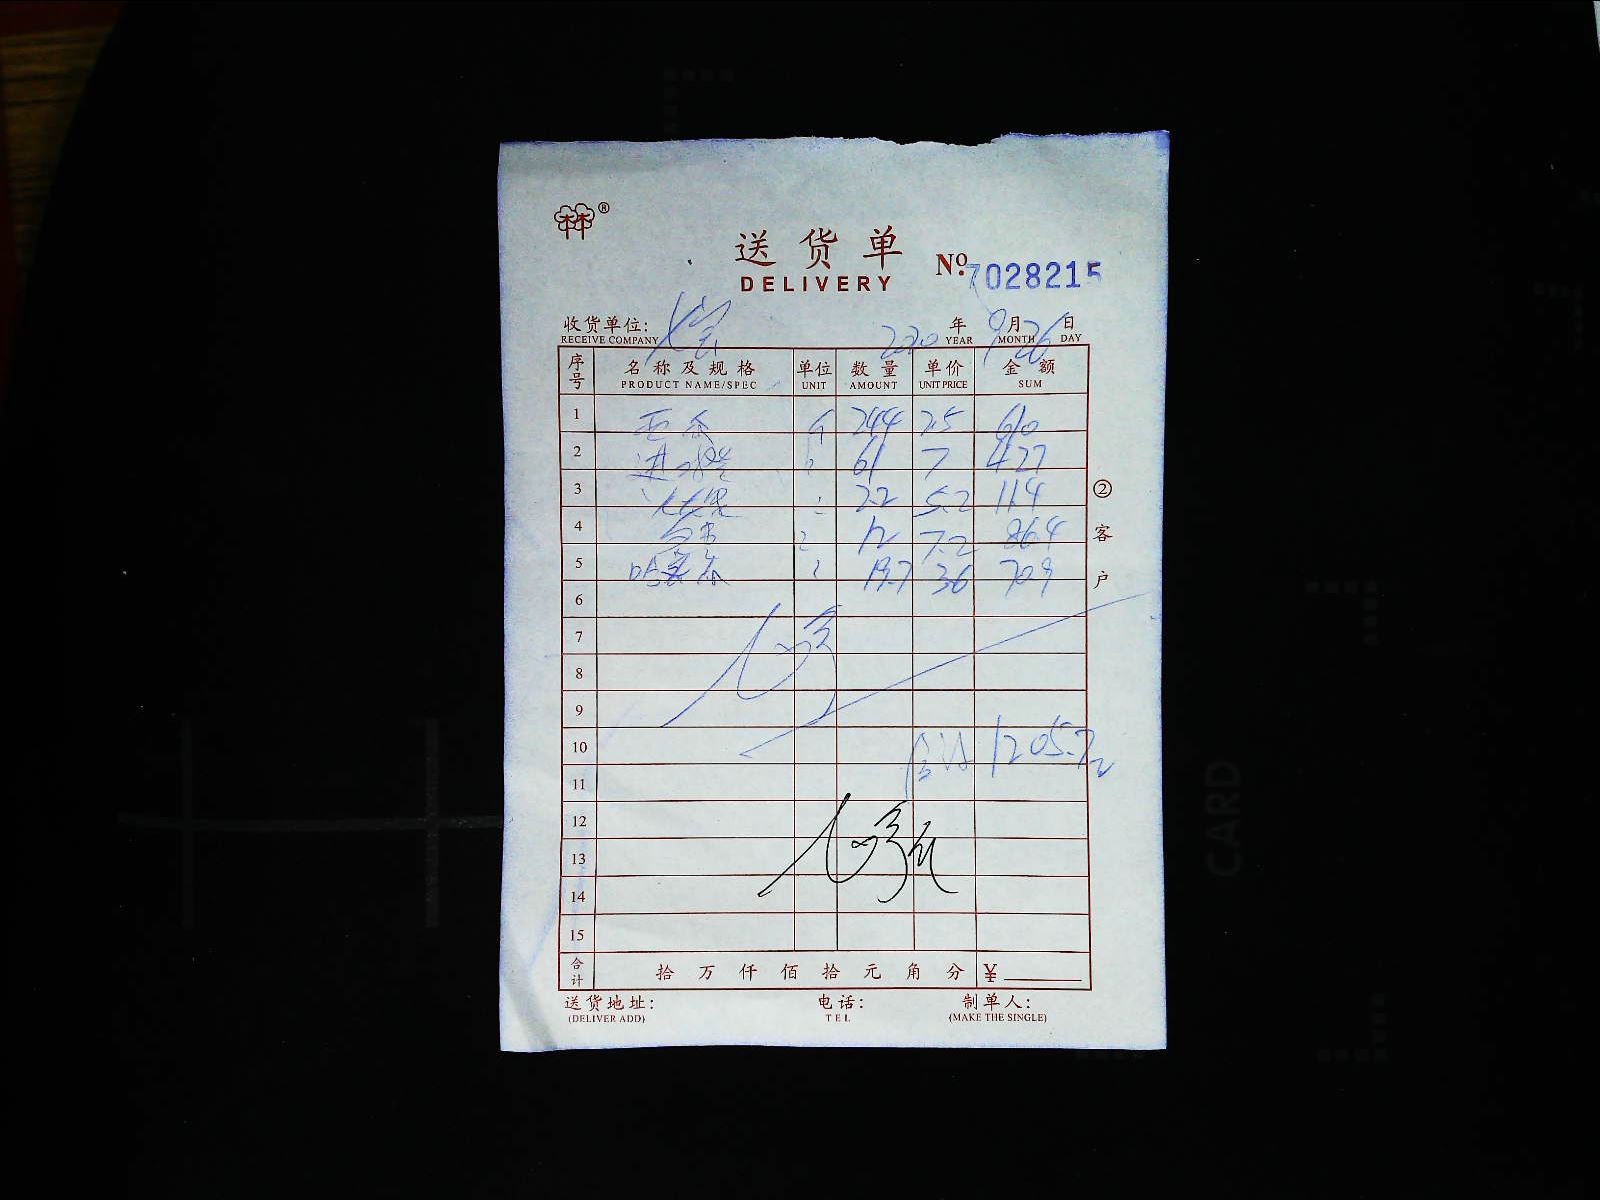 林林®
送货单
DELIVERY
№ 7028215
收货单位:
RECEIVE COMPANY
2020 年 9 月 26 日
YEAR MONTH DAY
序号 名称及规格 单位 数量 单价 金额
PRODUCT NAME/SPEC UNIT AMOUNT UNIT PRICE SUM
1 西瓜 个 244 2.5 610
2 61 7 427
3 2.2 5.2 11.4
4 12 7.2 86.4
5 哈密瓜 19.7 3.6 70.9
6
7
8
9
10 合计 1205.7元
11
12
13
14
15
合计 拾 万 仟 佰 拾 元 角 分 ¥
②客户
送货地址: 电话: 制单人:
(DELIVER ADD) TEL (MAKE THE SINGLE)
CARD